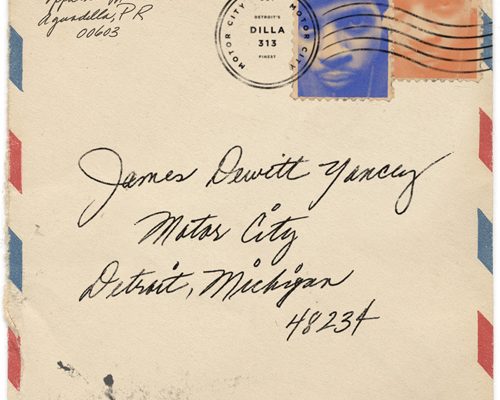 Aguadilla, PR
00603
MOTOR CITY
MOTOR CITY
DETROIT'S
DILLA
313
FINEST
James Dewitt Yancey
Motor City
Detroit, Michigan
48234